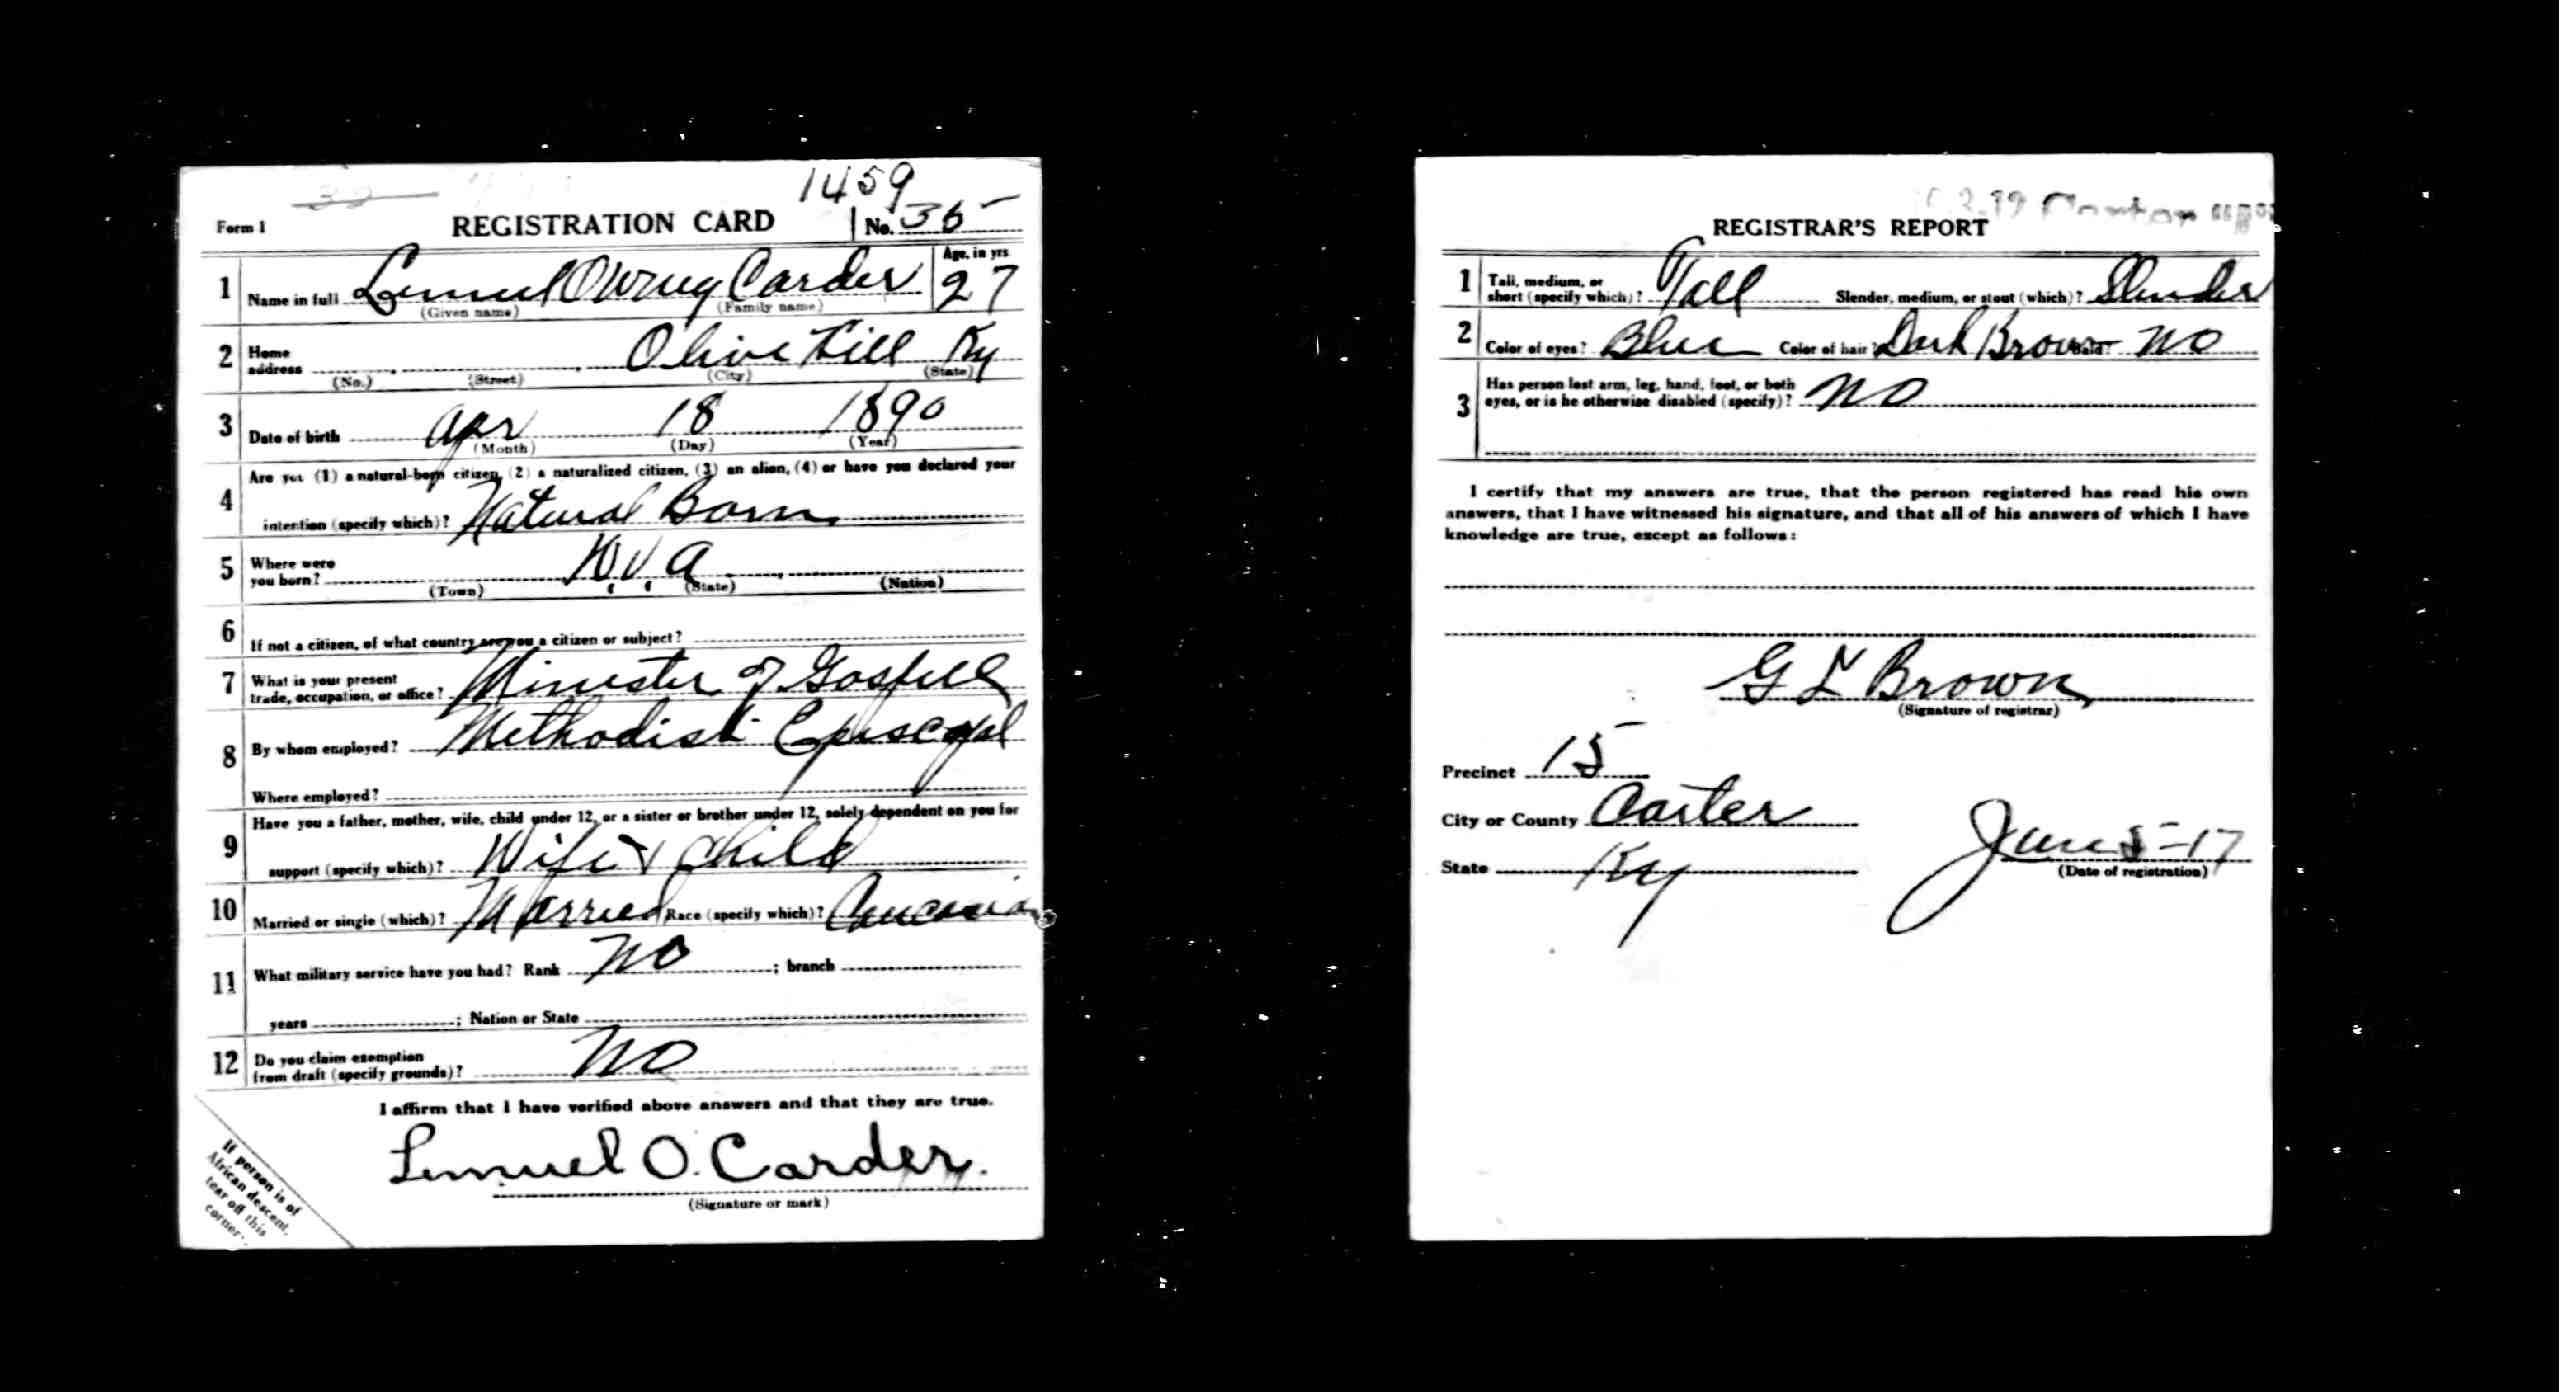 1459
Form 1 REGISTRATION CARD No. 35
1 Name in full Lemuel Carder Age, in yrs 27
(Given name) (Family name)
2 Home address Olive Hill Ky
(No.) (Street) (City) (State)
3 Date of birth Apr 18 1890
(Month) (Day) (Year)
4 Are you (1) a natural-born citizen, (2) a naturalized citizen, (3) an alien, (4) or have you declared your
intention (specify which)? Natural Born
5 Where were you born? W Va
(Town) (State) (Nation)
6 If not a citizen, of what country are you a citizen or subject?
7 What is your present trade, occupation, or office? Minister of Gospel
8 By whom employed? Methodist Episcopal
Where employed?
9 Have you a father, mother, wife, child under 12, or a sister or brother under 12, solely dependent on you for
support (specify which)? Wife & Child
10 Married or single (which)? Married Race (specify which)? Caucasian
11 What military service have you had? Rank No ; branch
years ; Nation or State
12 Do you claim exemption from draft (specify grounds)? No
I affirm that I have verified above answers and that they are true.
Lemuel O. Carder.
(Signature or mark)
If person is of
African descent,
tear off this
corner.
REGISTRAR'S REPORT
1 Tall, medium, or short (specify which)? Tall Slender, medium, or stout (which)? Slender
2 Color of eyes? Blue Color of hair? Dark Brown Bald? No
3 Has person lost arm, leg, hand, foot, or both
eyes, or is he otherwise disabled (specify)? No
I certify that my answers are true, that the person registered has read his own
answers, that I have witnessed his signature, and that all of his answers of which I have
knowledge are true, except as follows:
G L Brown
(Signature of registrar)
Precinct 15
City or County Carter
State Ky June 5-17
(Date of registration)